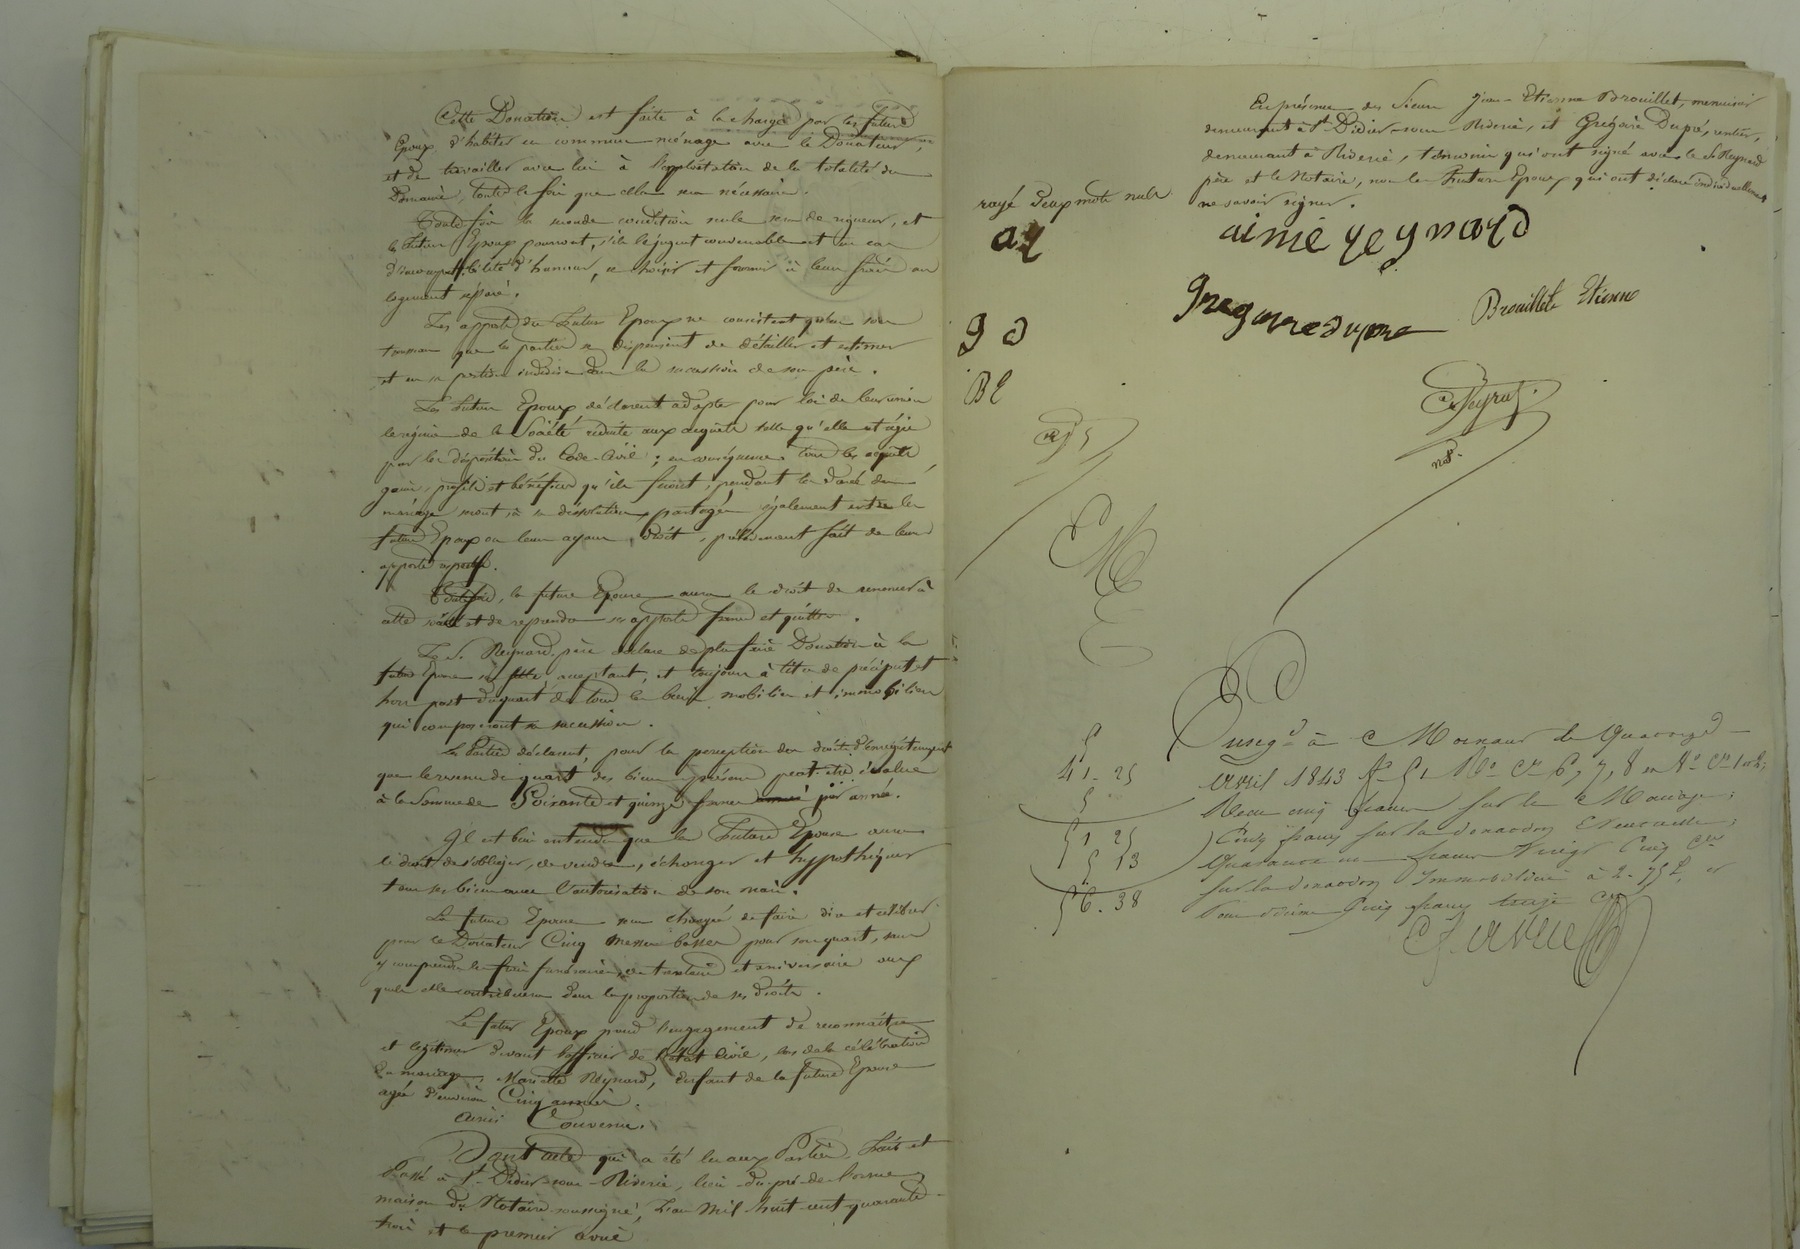 Cette Donation est faite à la charge par les futurs
Epoux d'habiter en commun ménage avec le Donateur,
et de travailler avec lui à l'exploitation de la totalité du
Domaine, toutes les fois que cela sera nécessaire.
Toutefois la seconde condition seule sera de rigueur, et
les futurs Epoux pourront, s'ils le jugent convenable et en cas
d'incompatibilité d'humeur, se choisir et fournir à leurs frais un
logement séparé.
Les apports du futur Epoux ne consistent qu'en son
trousseau que les parties se dispensent de détailler et estimer
et en sa portion indivise dans la succession de son père.
Les futurs Epoux déclarent adopter pour loi de leur union
le régime de la Société réduite aux acquêts telle qu'elle est régie
par les dispositions du Code Civil; en conséquence tous les acquêts
gains, profits et bénéfices qu'ils feront, pendant la durée du
mariage seront, à sa dissolution, partagés également entre les
futurs Epoux ou leurs ayant droit, prélèvement fait de leurs
apports respectifs.
Toutefois, la future Epouse aura le droit de renoncer à
cette société et de reprendre ses apports francs et quittes.
Le S. Reynard père déclare de plus faire Donation à la
future Epouse sa fille acceptant, et toujours à titre de préciput et
hors part du quart de tous les biens mobiliers et immobiliers
qui composeront sa succession.
Les Parties déclarent, pour la perception des droits d'enregistrement
que le revenu du quart des biens présens peut être évalué
à la Somme de Soixante et quinze francs par année.
Il est bien entendu que la future Epouse aura
le droit de s'obliger, de vendre, échanger et hypothéquer
tous ses biens avec l'autorisation de son mari.
La future Epouse sera chargée de faire dire et célébrer
pour le Donateur Cinq messes basses pour son quart, sans
y comprendre les frais funéraires, de trentaine et aniversaire aux
quels elle contribuera dans la proportion de ses droits.
Le futur Epoux prend l'engagement de reconnaître
et légitimer devant l'officier de l'état Civil, lors de la célébration
du mariage, Mariette Reynard, Enfant de la future Epouse
agée d'environ Cinq années.
Ainsi Convenu.
Dont acte qui a été lu aux Parties. Fait et
Passé à St Didier-sous-Riverie, lieu du pré de
maison du Notaire soussigné, L'an Mil huit cent quarante
trois et le premier avril
En présence des Sieurs Jean-Etienne Brouillet, menuisier
demeurant à St Didier-sous-Riverie, et Grégoire Dupré, rentier,
demeurant à Riverie, témoins qui ont signé avec le Sr Reynard
père et le Notaire, non les Futurs Epoux qui ont déclaré individuellement
ne savoir signer.
rayé deux mots nuls
aimé reynard
ay
gregoire dupre Brouillet Etienne
g d
BE
not.
Enregé à Mornant le quatorze
5
avril 1843 fo 51 Vo Ces 6, 7, 8 et Ro Ces 1 et 2;
41-25
Reçu cinq francs sur le Mariage;
5
Cinq francs sur la donation Eventuelle;
51 25
Quarante un francs Vingt Cinq Ces
5 13
sur la donation Immobilière à 2-75 %, et
56-38
Pour décime Cinq francs treize Ces